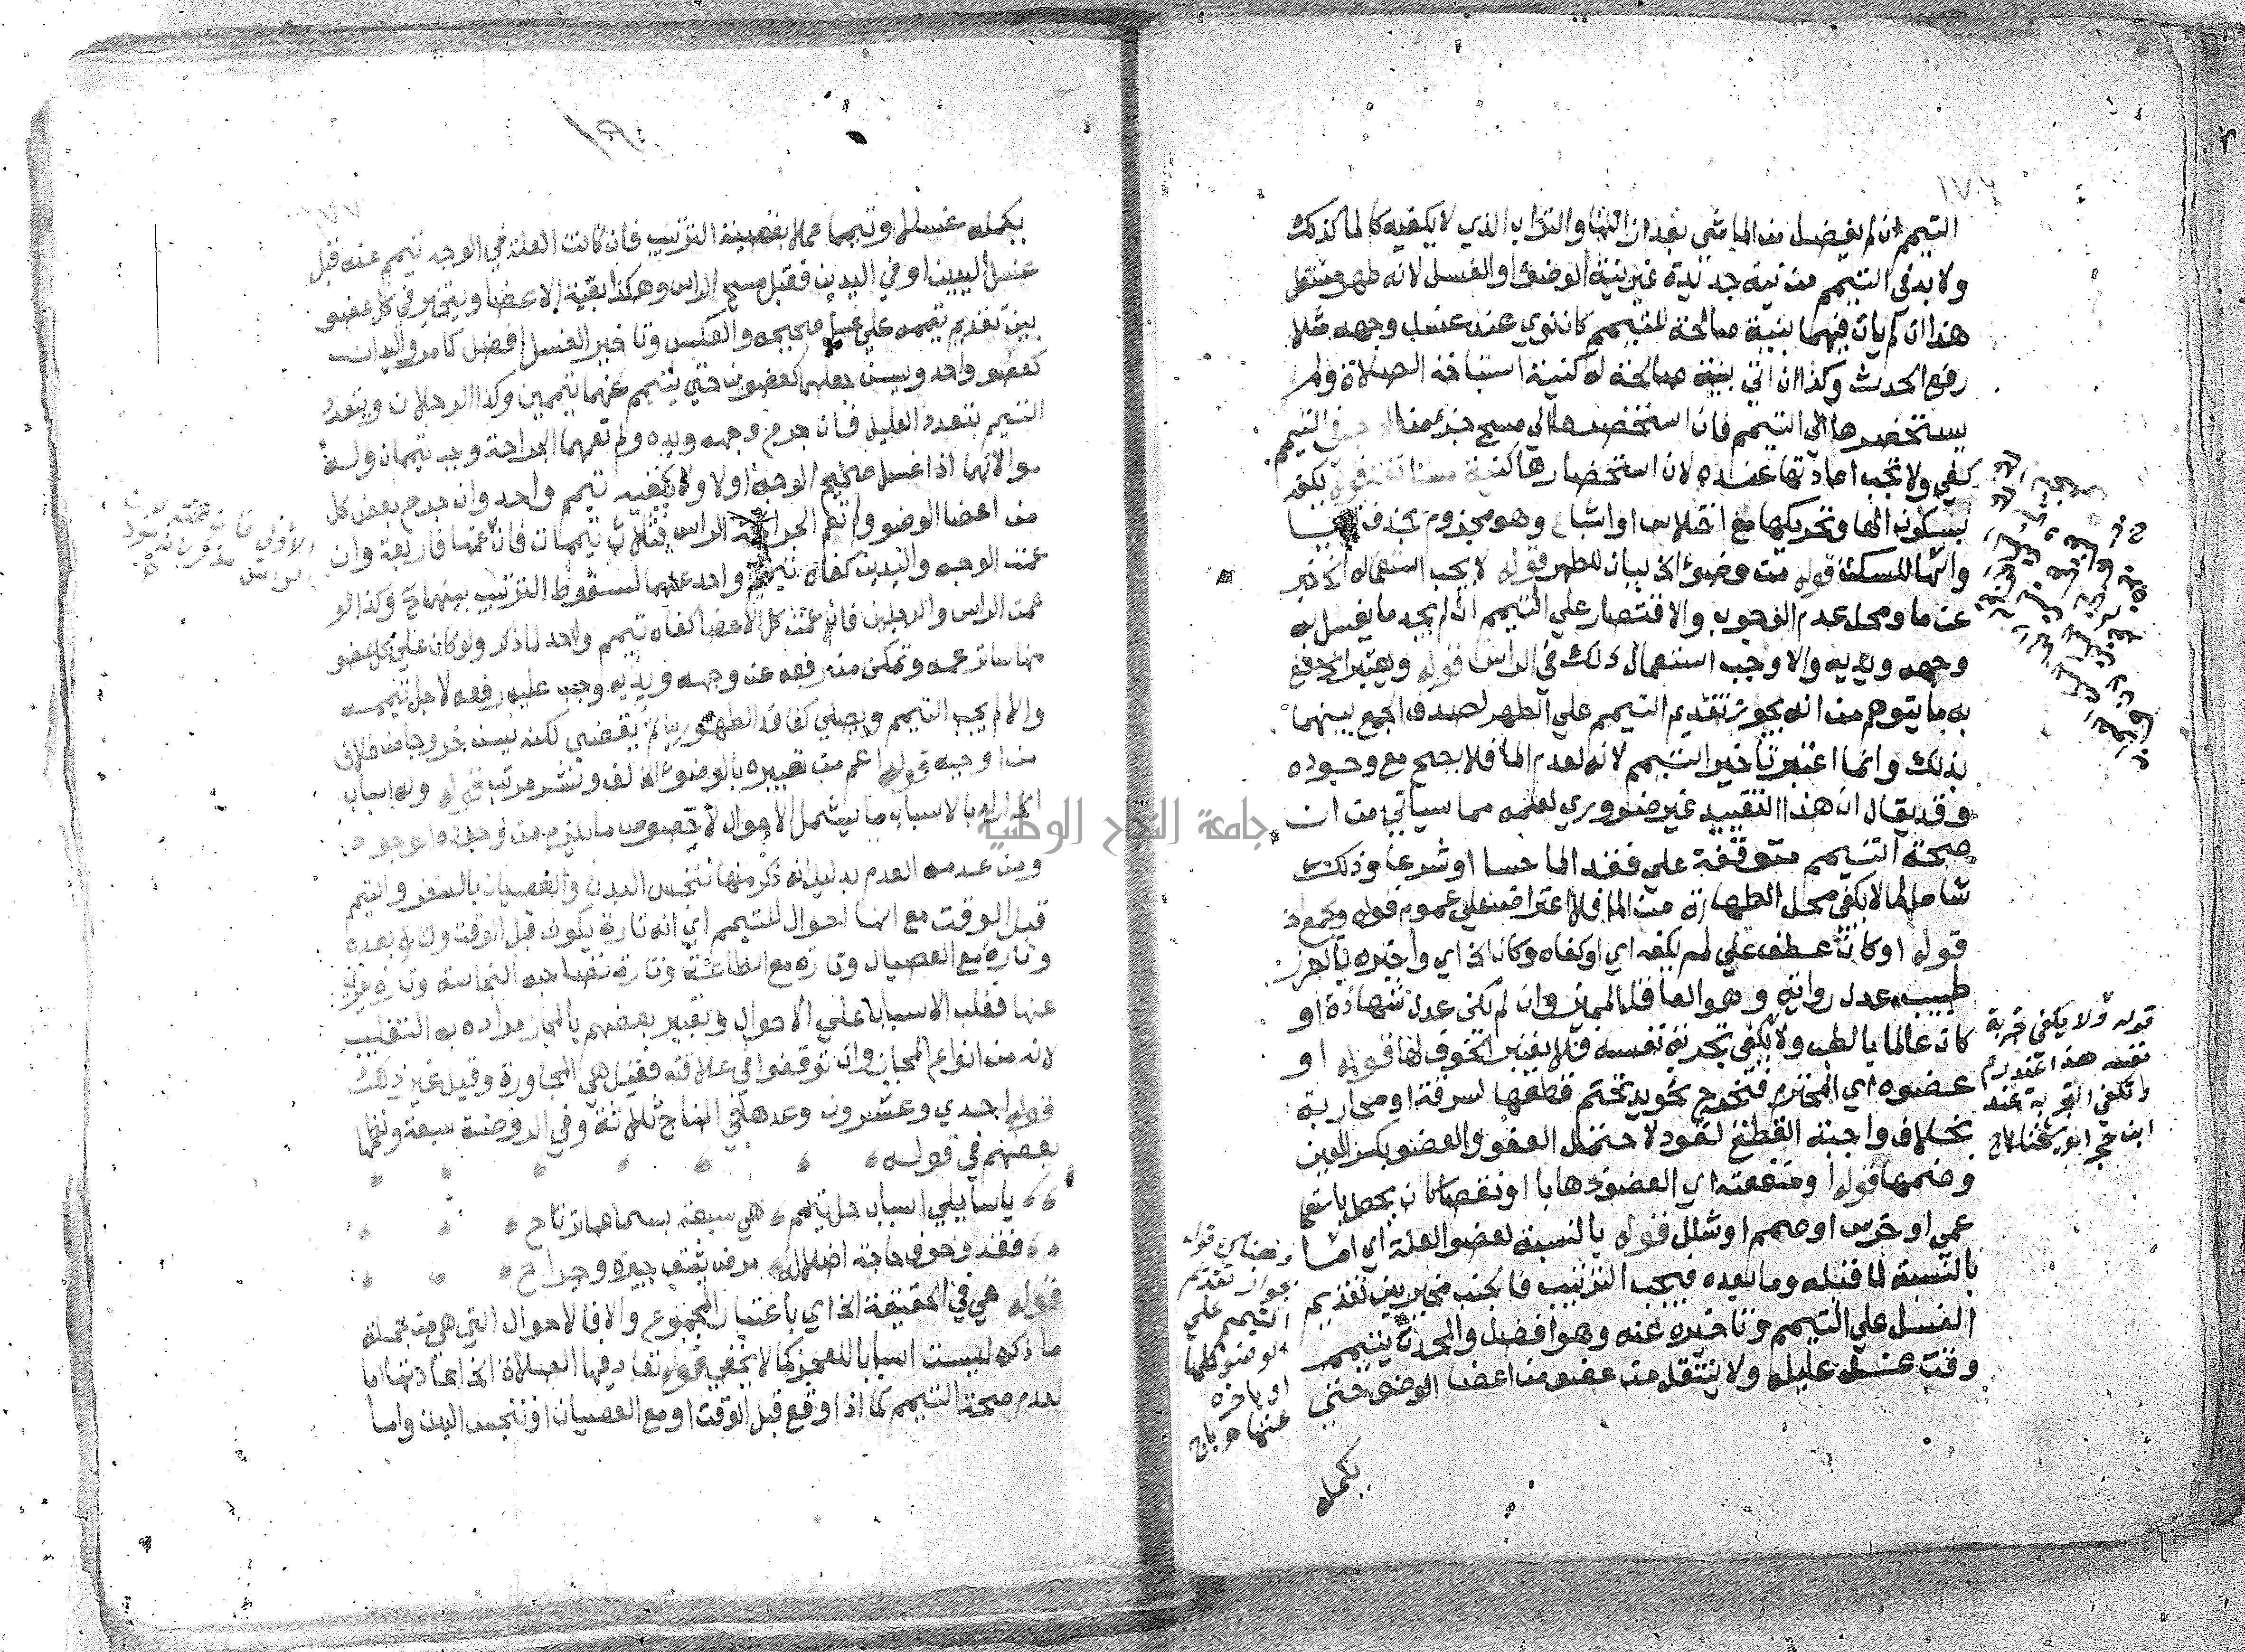 ١٧٦
التيمم ان لم يفضل من الما شي بعد ازالتها والتراب الذي لا يكفيه كالما كذلك
ولا بد في التيمم من نية جديدة غير نية الوضوء او الغسل لانه طهر مستقل
هذا ان لم يات فيهما بنية صالحة للتيمم كان نوي عند غسل وجهه مثلا
رفع الحدث وكذا ان اتي بنية صالحة له كنية استباحة الصلاة ولم
يستحضرها الي التيمم فان استحضرها الي مسح جزء من الوجه في التيمم
كفي ولا تجب اعادتها عنده لان استحضارها كنية مستانفة قوله يكفه
بسكون الها وتحريكها مع اختلاس او اشباع وهو مجزوم بحذف اليا
وانها للسكت قوله من وضوء الخ بيان للطهر قوله لا يجب استعماله الخ خبر
عن ما ومحل عدم الوجوب والاقتصار علي التيمم ان لم يجد ما يغسل به
وجهه ويديه والا وجب استعمال ذلك في الراس قوله ويعتبر الخ دفع
به ما يتوهم من انه يجوز تقديم التيمم علي الطهر لصدق الجمع بينهما
بذلك وانما اعتبر تاخير التيمم لانه لعدم الما فلا يصح مع وجوده
وقد يقال ان هذا التقييد غير ضروري لعلمه مما سياتي من ان
صحة التيمم متوقفة علي فقد الما حسا او شرعا وذلك
شامل لما لا يكفي محل الطهارة من الما فلا اعتراض علي عموم قوله
قوله او كان عطف علي لم يكفه اي او كفاه وكان الخ اي واخبره بالضرر
طبيب عدل رواية وهو البالغ العاقل وان لم يكن عدل شهادة او
كان عالما بالطب ولا يكفي تجربة نفسه فلا يعتبر الخوف لها قوله او
عضوه اي المحترم فتخرج نحو يد تحتم قطعها لسرقة او محاربة
بخلاف واجبة القطع لقود لاحتمال العفو والعضو بكسر العين
وضمها قوله او منفعته اي العضو ذهابا او نقصا كان يحصل باستعماله
عمي او خرس او صمم او شلل قوله بالنسبة لعضو العلة اي اما
بالنسبة لما قبله وما بعده فيجب الترتيب فالجنب مخير بين تقديم
الغسل علي التيمم وتاخيره عنه وهو افضل والمحدث يتيمم
وقت غسل عليله ولا ينتقل من عضو من اعضا الوضوء حتي
يكمله
قوله ولا يكفي تجربة
نفسه هذا عند م ر
وتكفي التجربة عند
ابن حجر
قوله
بجواز تقديم
التيمم علي
الوضوء كلها
او ياخره
عنها
١٧٧
يكمله غسلا وتيمما عملا بقضية الترتيب فان كانت العلة في الوجه تيمم عنه قبل
غسل اليدين او في اليدين فقبل مسح الراس وهكذا بقية الاعضا ويتخير في كل عضو
بين تقديم تيممه علي غسل صحيحه والعكس وتاخير الغسل افضل كما مر واليدان
كعضو واحد ويسن جعلهما كعضوين حتي يتيمم عنهما تيممين وكذا الرجلان ويتعدد
التيمم بتعدد العليل فان جرح وجهه ويده ولم تعمهما الجراحة وجب تيممان وله
موالاتهما اذا غسل صحيح الوجه اولا ولا يكفيه تيمم واحد وان جرح بعض كل
من اعضا الوضوء ولم تعم الجراحة الراس فثلاث تيممات فان عمتها فاربعة وان
عمت الوجه واليدين كفاه تيمم واحد عنهما لسقوط الترتيب بينهما ح وكذا لو
عمت الراس والرجلين فان عمت كل الاعضا كفاه تيمم واحد لما ذكر ولو كان علي كل عضو
منها ساتر عمه وتمكن من رفعه عن وجهه ويديه وجب عليه رفعه لاجل تيممه
والا لم يجب التيمم ويصلي كفاقد الطهورين ثم يقضي لكنه يسن خروجا من خلاف
من اوجبه قوله اعم من تعبيره بالوضوء الخ لف ونشر مرتب قوله وله اسباب
الخ اراد بالاسباب ما يشمل الاحوال لا خصوص ما يلزم من وجوده الوجود
ومن عدمه العدم بدليل انه ذكر منها تنجس البدن والعصيان بالسفر والتيمم
قبل الوقت مع انها احوال للتيمم اي انه تارة يكون قبل الوقت وتارة بعده
وتارة مع العصيان وتارة مع الطاعة وتارة تصاحبه النجاسة وتارة يعري
عنها فغلب الاسباب علي الاحوال وتعبير بعضهم بالمجاز مراده به التغليب
لانه من انواع المجاز وان توقفوا في علاقته فقيل هي المجاورة وقيل غير ذلك
قوله احدي وعشرون وعدها في المنهاج ثلاثة وفي الروضة سبعة ونظمها
بعضهم في قوله
يا سايلي اسباب حل تيمم هي سبعة بسماعها ترتاح
فقد وخوف حاجة اضلاله مرض يشق جبيرة وجراح
قوله هي في الحقيقة الخ اي باعتبار المجموع والا فالاحوال التي هي من جملة
ما ذكره ليست اسبابا للعجز كما لا يخفي قوله تعاد فيها الصلاة الخ اعادتها اما
لعدم صحة التيمم كما اذا وقع قبل الوقت او مع العصيان او تنجس البدن واما
جامعة النجاح الوطنية